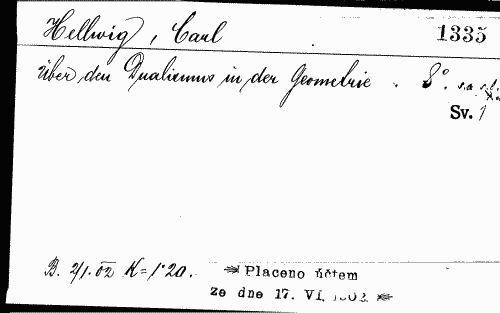 Hellwig, Carl 1335
über den Dualismus in der Geometrie. 8°. s.a. s.l.
Sv. 1
B. 2/1.02 K=1·20.
Placeno účtem
ze dne 17. VI. 1902